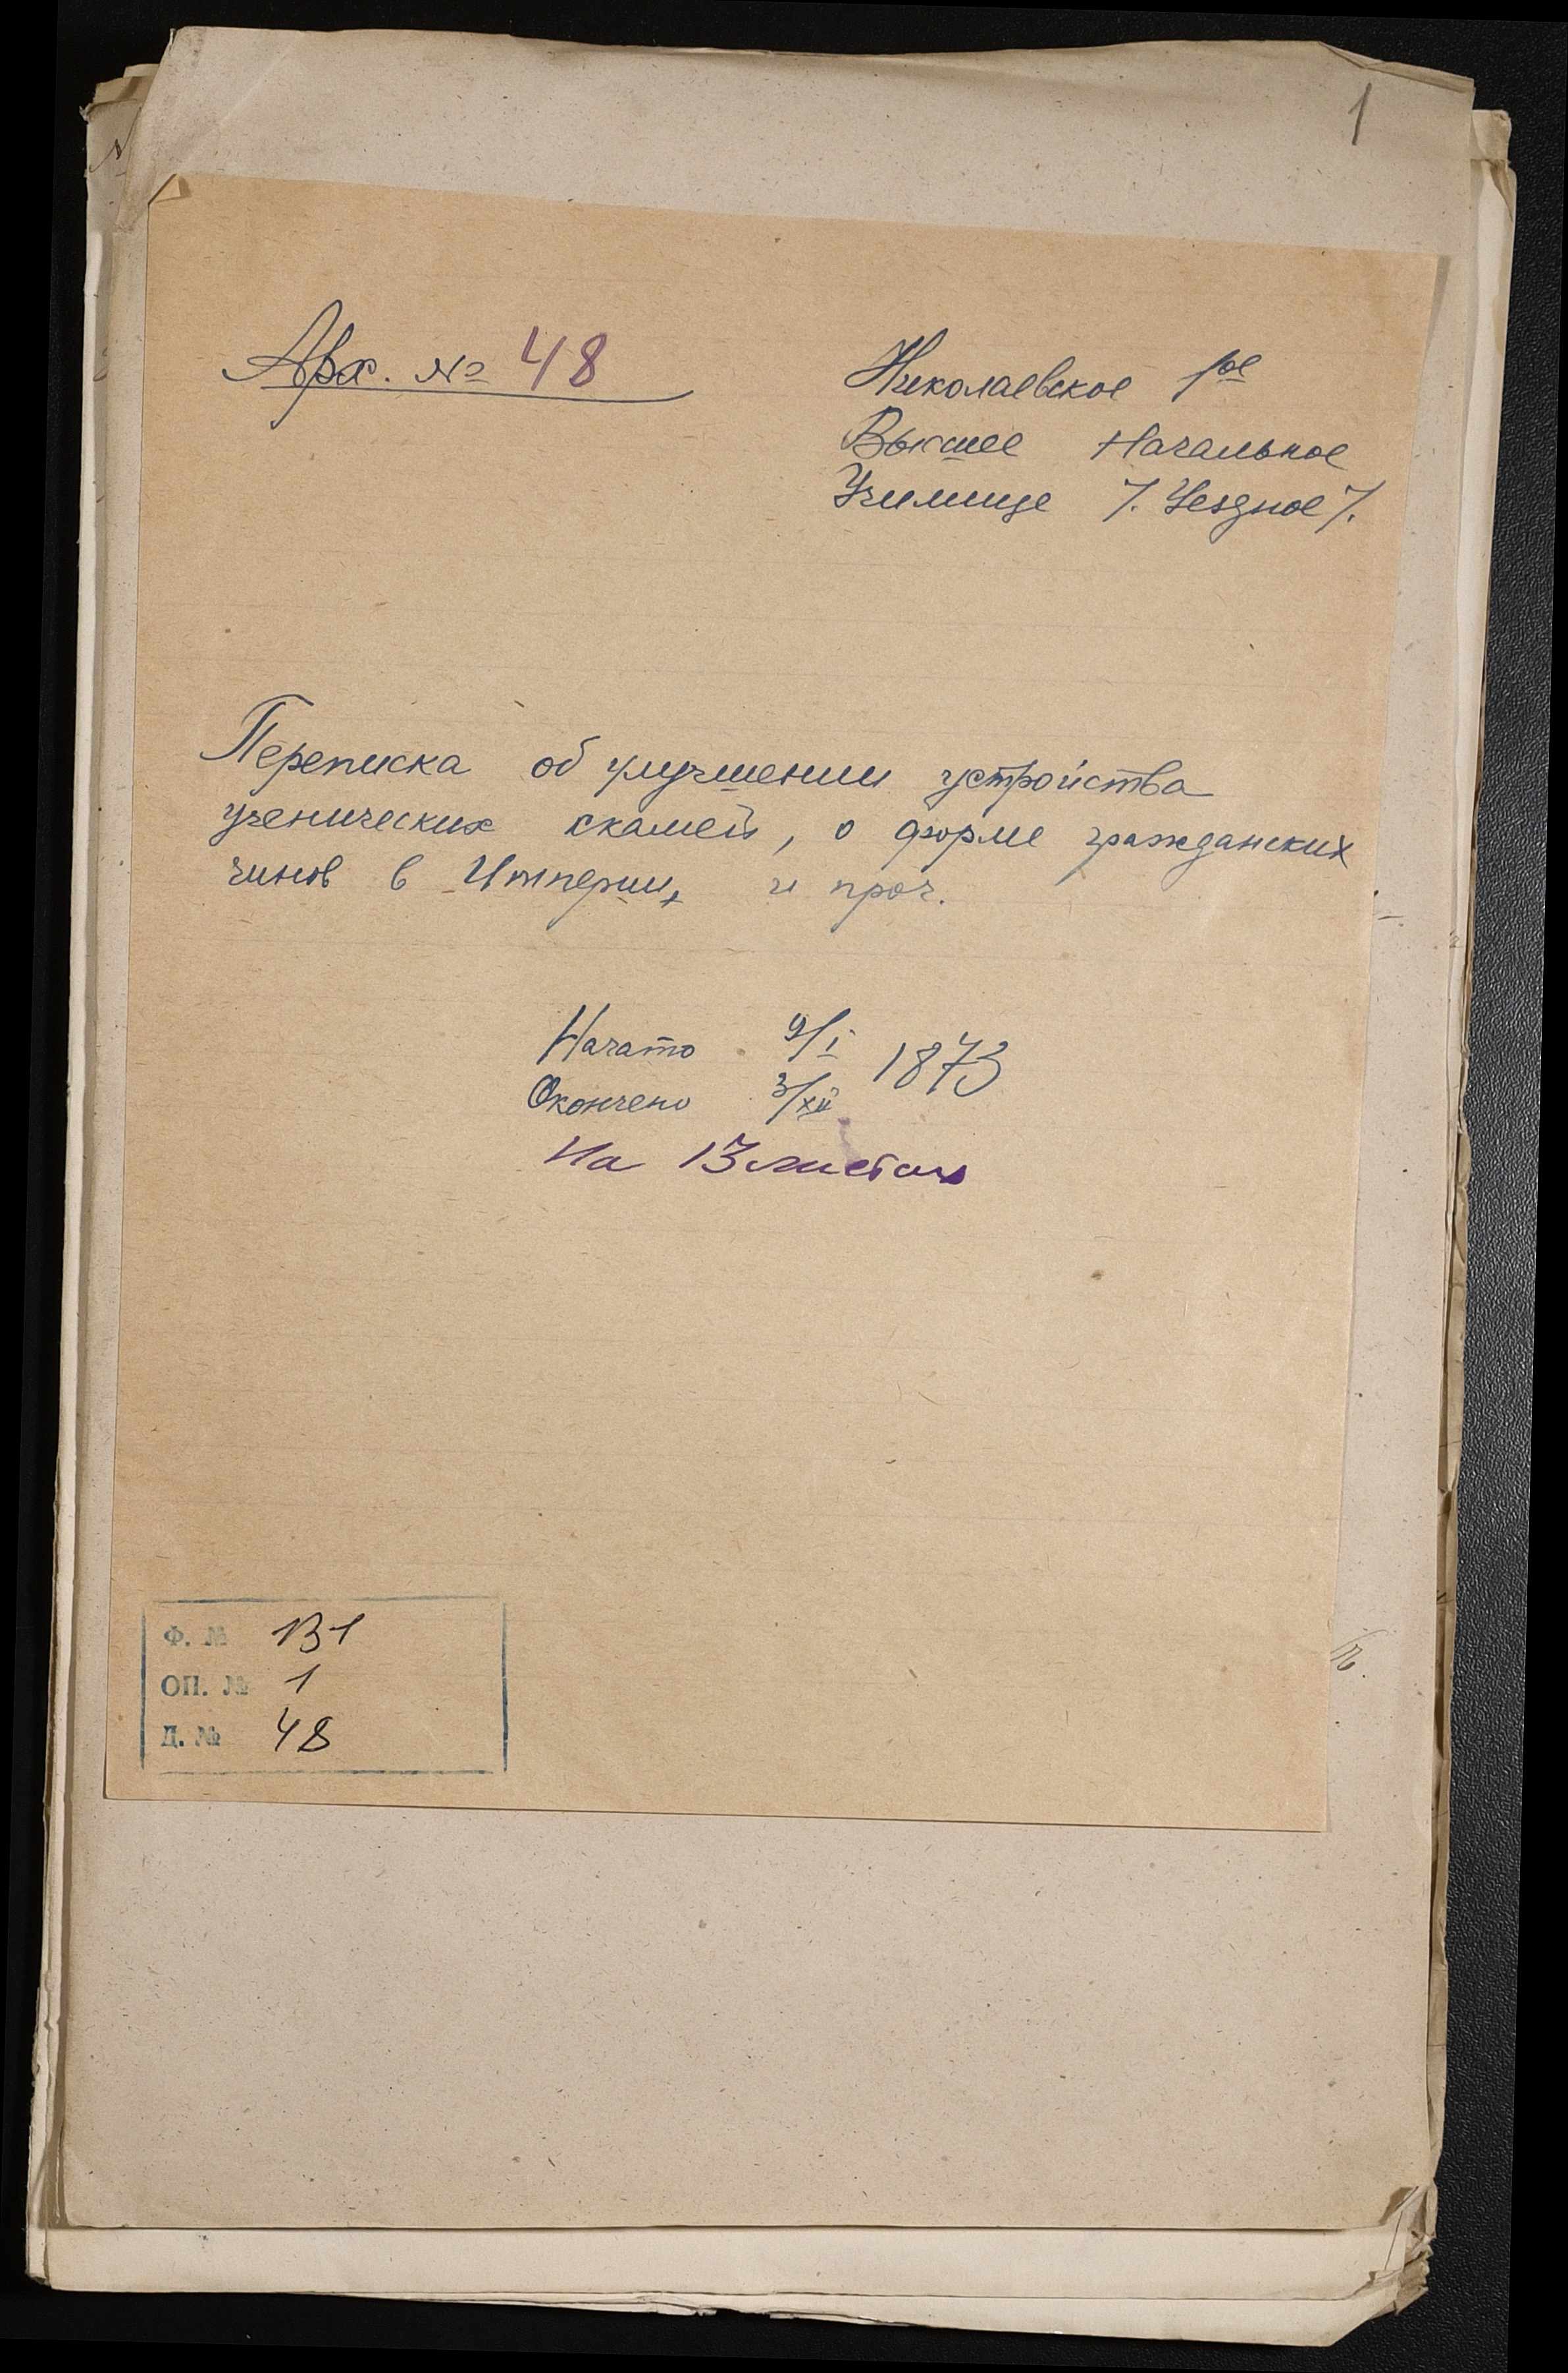 1
Арх. № 48
Николаевское 1ое
Высшее Начальное
Училище /. Уездное /.
Переписка об улучшении устройства
ученических скамей, о форме гражданских
чинов в Империи, и проч.
Начато 9/I 1873
Окончено 3/XII
На 13 листах
Ф. № 131
ОП. № 1
Д. № 48